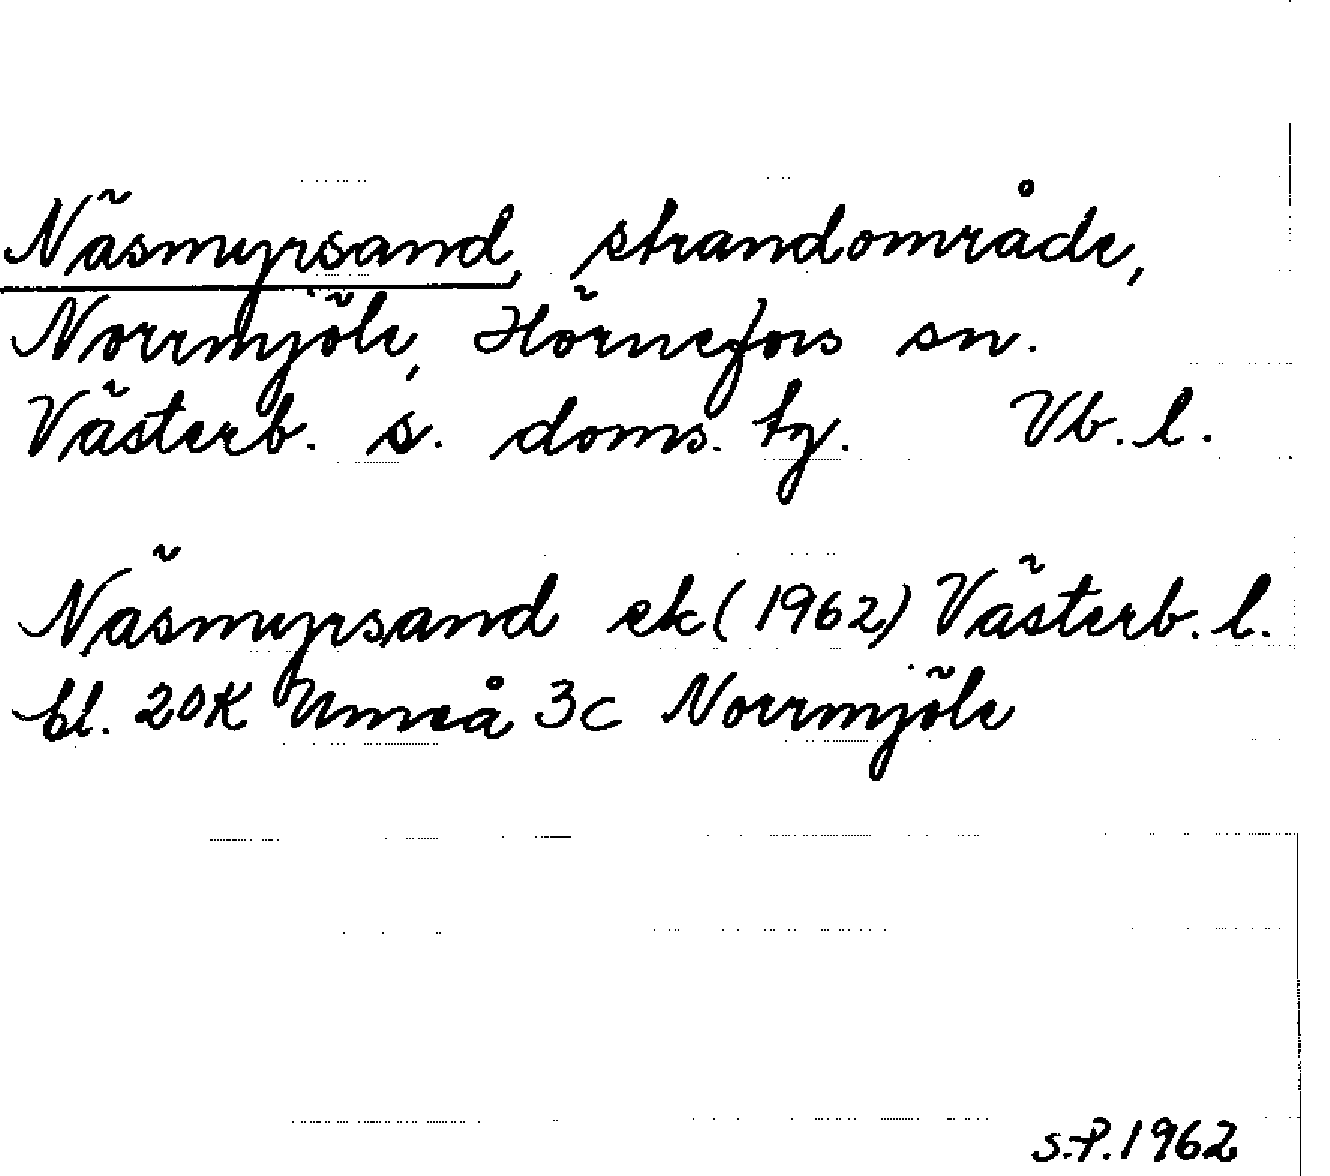 Näsmyrsand, strandområde,
Norrmjöle, Hörnefors sn.
Västerb. s. doms. tg. Vb. l.
Näsmyrsand ek (1962) Västerb. l.
bl. 20K Umeå 3c Norrmjöle
S.P. 1962